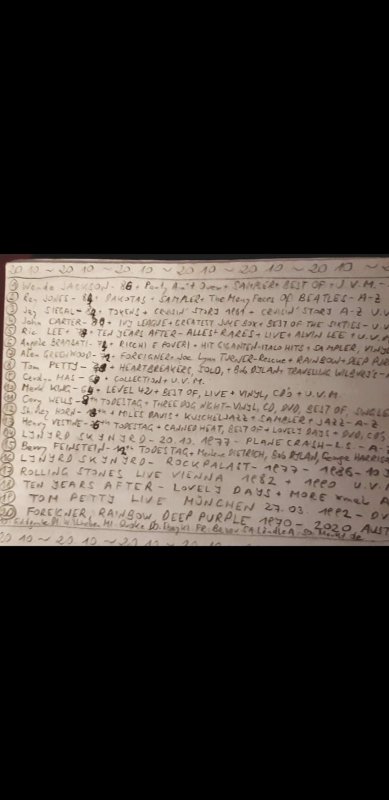 20 10 ~ 20 10 ~ 20 10 ~ 20 10 ~ 20 10 ~ 20 10 ~
① Wanda JACKSON - 86 + Party Ain't Over + SAMPLER + BEST OF + U.V.M. -
② Ray JONES - 84 + DAKOTAS + SAMPLER + The Many Faces OF BEATLES - A-Z
③ Jay SIEGAL - 84 + TOKENS + CRUSIN' STORY 1961 + CRUSIN' STORY A-Z U.V.
④ John CARTER - + IVY LEAGUE + GREATEST JUKE BOX + BEST OF THE SIXTIES - U.V
⑤ Ric LEE + TEN YEARS AFTER - ALLES + RARES + LIVE + ALVIN LEE + U.V.
⑥ BRAMBATI - 74 + RICCHI E POVERI + HIT GIGANTEN - ITALO HITS + SAMPLER, VINYL
⑦ Alan GREENWOOD - 71 + FOREIGNER + Joe Lynn TURNER - + RAINBOW + DEEP PUR
⑧ Tom PETTY - + HEARTBREAKERS, SOLO, + Bob DYLAN + TRAVELLING WILBURYS -
⑨ MAS - + COLLECTION + U.V.M.
⑩ Mark KING - 64 + LEVEL 42 + BEST OF, LIVE + VINYL, CD'S + U.V.M.
⑪ Cory WELLS - TODESTAG + THREE DOG NIGHT - VINYL, CD, DVD, BEST OF, SINGLE
⑫ Shirley HORN - TODESTAG + MILES DAVIS + KUSCHELJAZZ + SAMPLER + JAZZ - A-Z
⑬ Henry VESTINE - TODESTAG + CANNED HEAT, BEST OF + LOVELY DAYS + DVD, CD'S
⑭ LYNYRD SKYNYRD - 20.10.1977 - PLANE CRASH - L.S. - A-
⑮ Barry FEINSTEIN - TODESTAG + Marlene DIETRICH, Bob DYLAN, George HARRISON
⑯ LYNYRD SKYNYRD - ROCKPALAST - 1977 -
⑰ ROLLING STONES LIVE VIENNA 1982 + 1990 U.V.M
⑱ TEN YEARS AFTER - LOVELY DAYS + MORE
⑲ TOM PETTY LIVE MÜNCHEN 27.03.1992 - DV
⑳ FOREIGNER, RAINBOW, DEEP PURPLE 1970 - 2020, AUST
20 10 ~ 20 10 ~ 20 10 ~ 20 10 ~ 20 10 ~ 20 10 ~